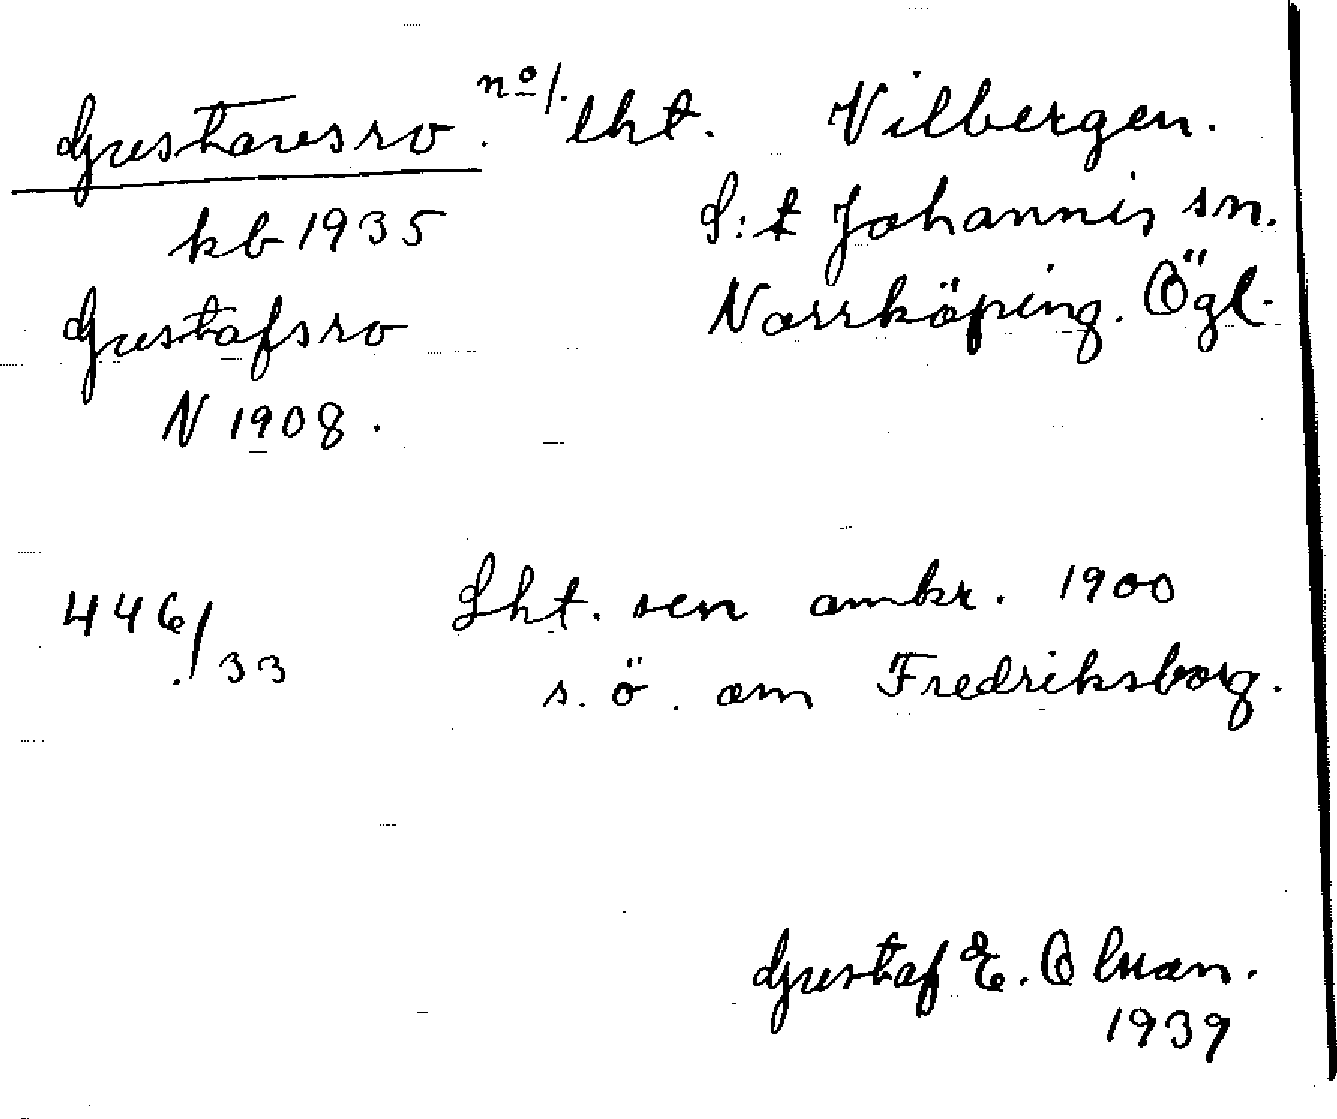 Gustavsro. nº 1. lht. Vilbergen.
kb 1935 S:t Johannis sn.
Gustafsro Norrköping. Ögl.
N 1908.
446/33 Lht. sen omkr. 1900
s. ö. om Fredriksborg.
Gustaf E. Olsson.
1939